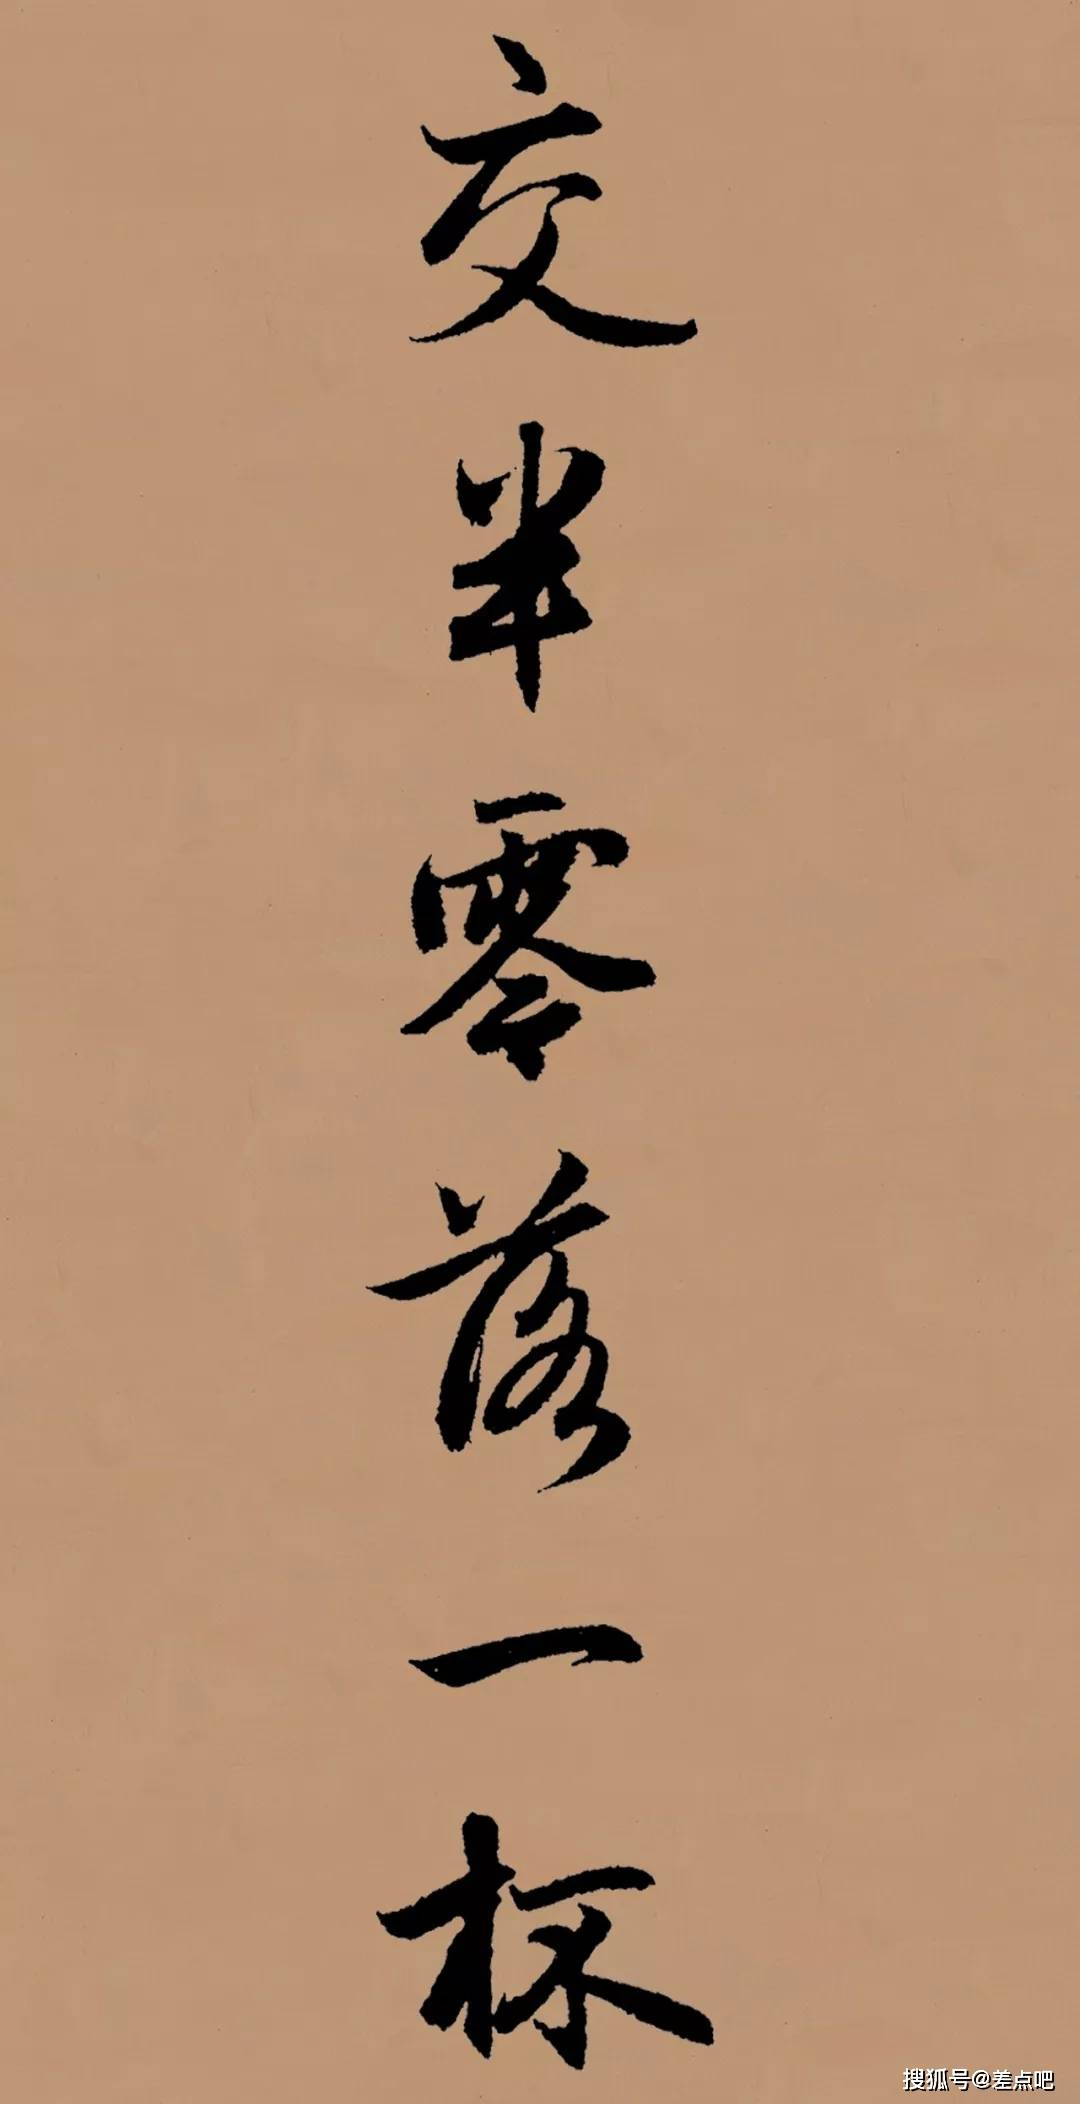 交半零落一杯
搜狐号@差点吧